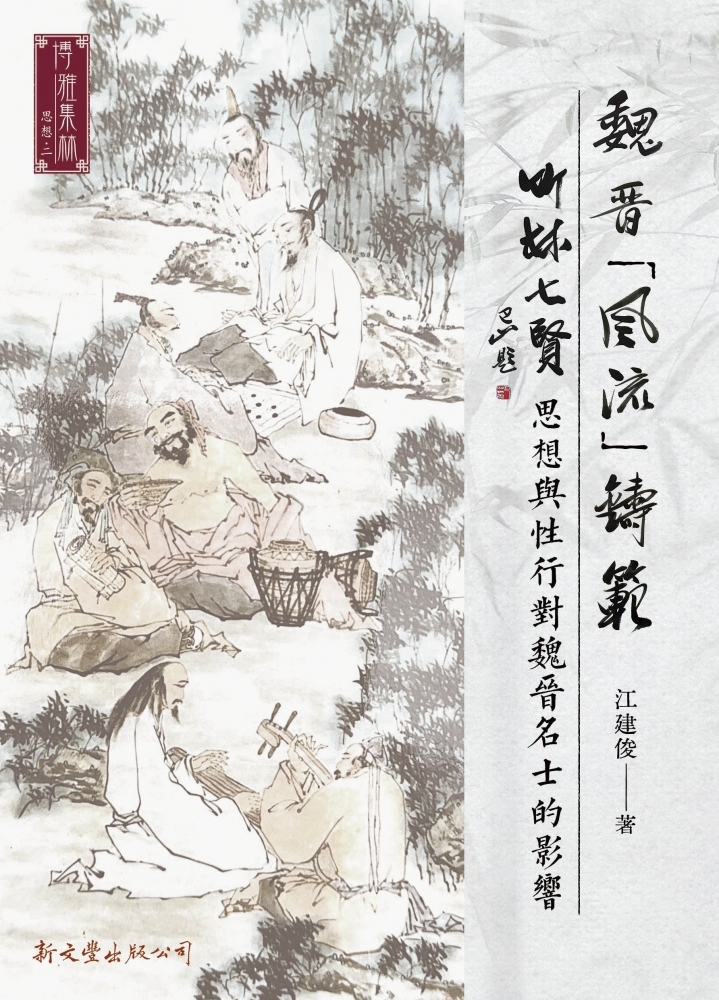 魏晉「風流」鑄範
竹林七賢
思想與性行對魏晉名士的影響
江建俊——著
博雅集林
思想・二
新文豐出版公司